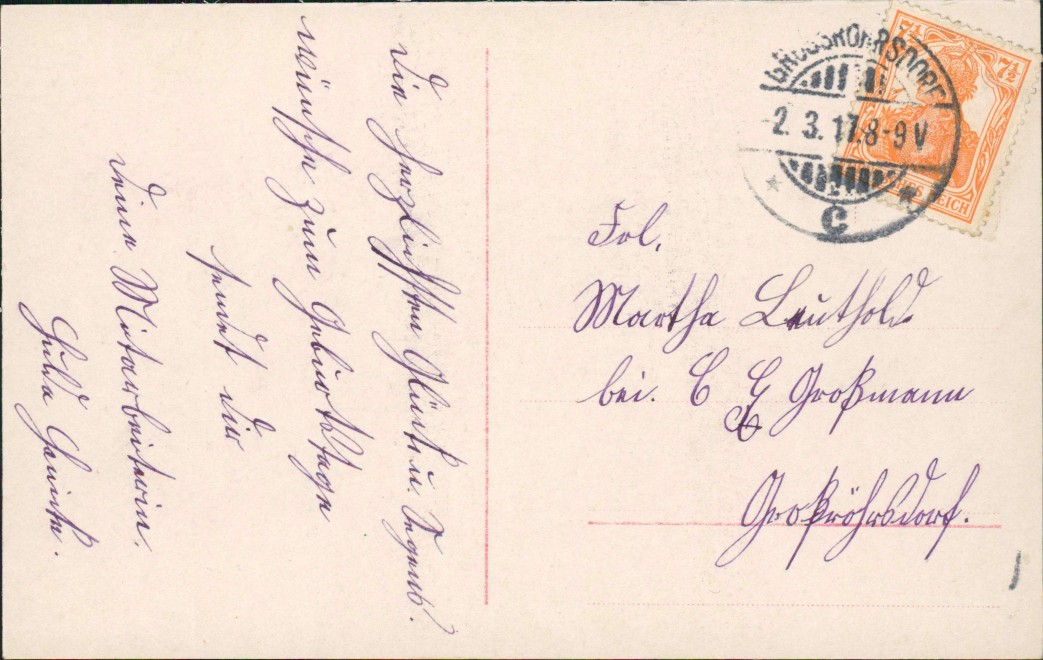 Die herzlichsten Glück u. Segens.
wünsche zum Geburtstage
sendet dir
deine Mitarbeiterin.
Hulda
GROSSRÖHRSDORF
2.3.17.8-9V
C
7½ 7½
REICH
Frl.
Martha Leuthold
bei. C G Großmann
Großröhrsdorf.